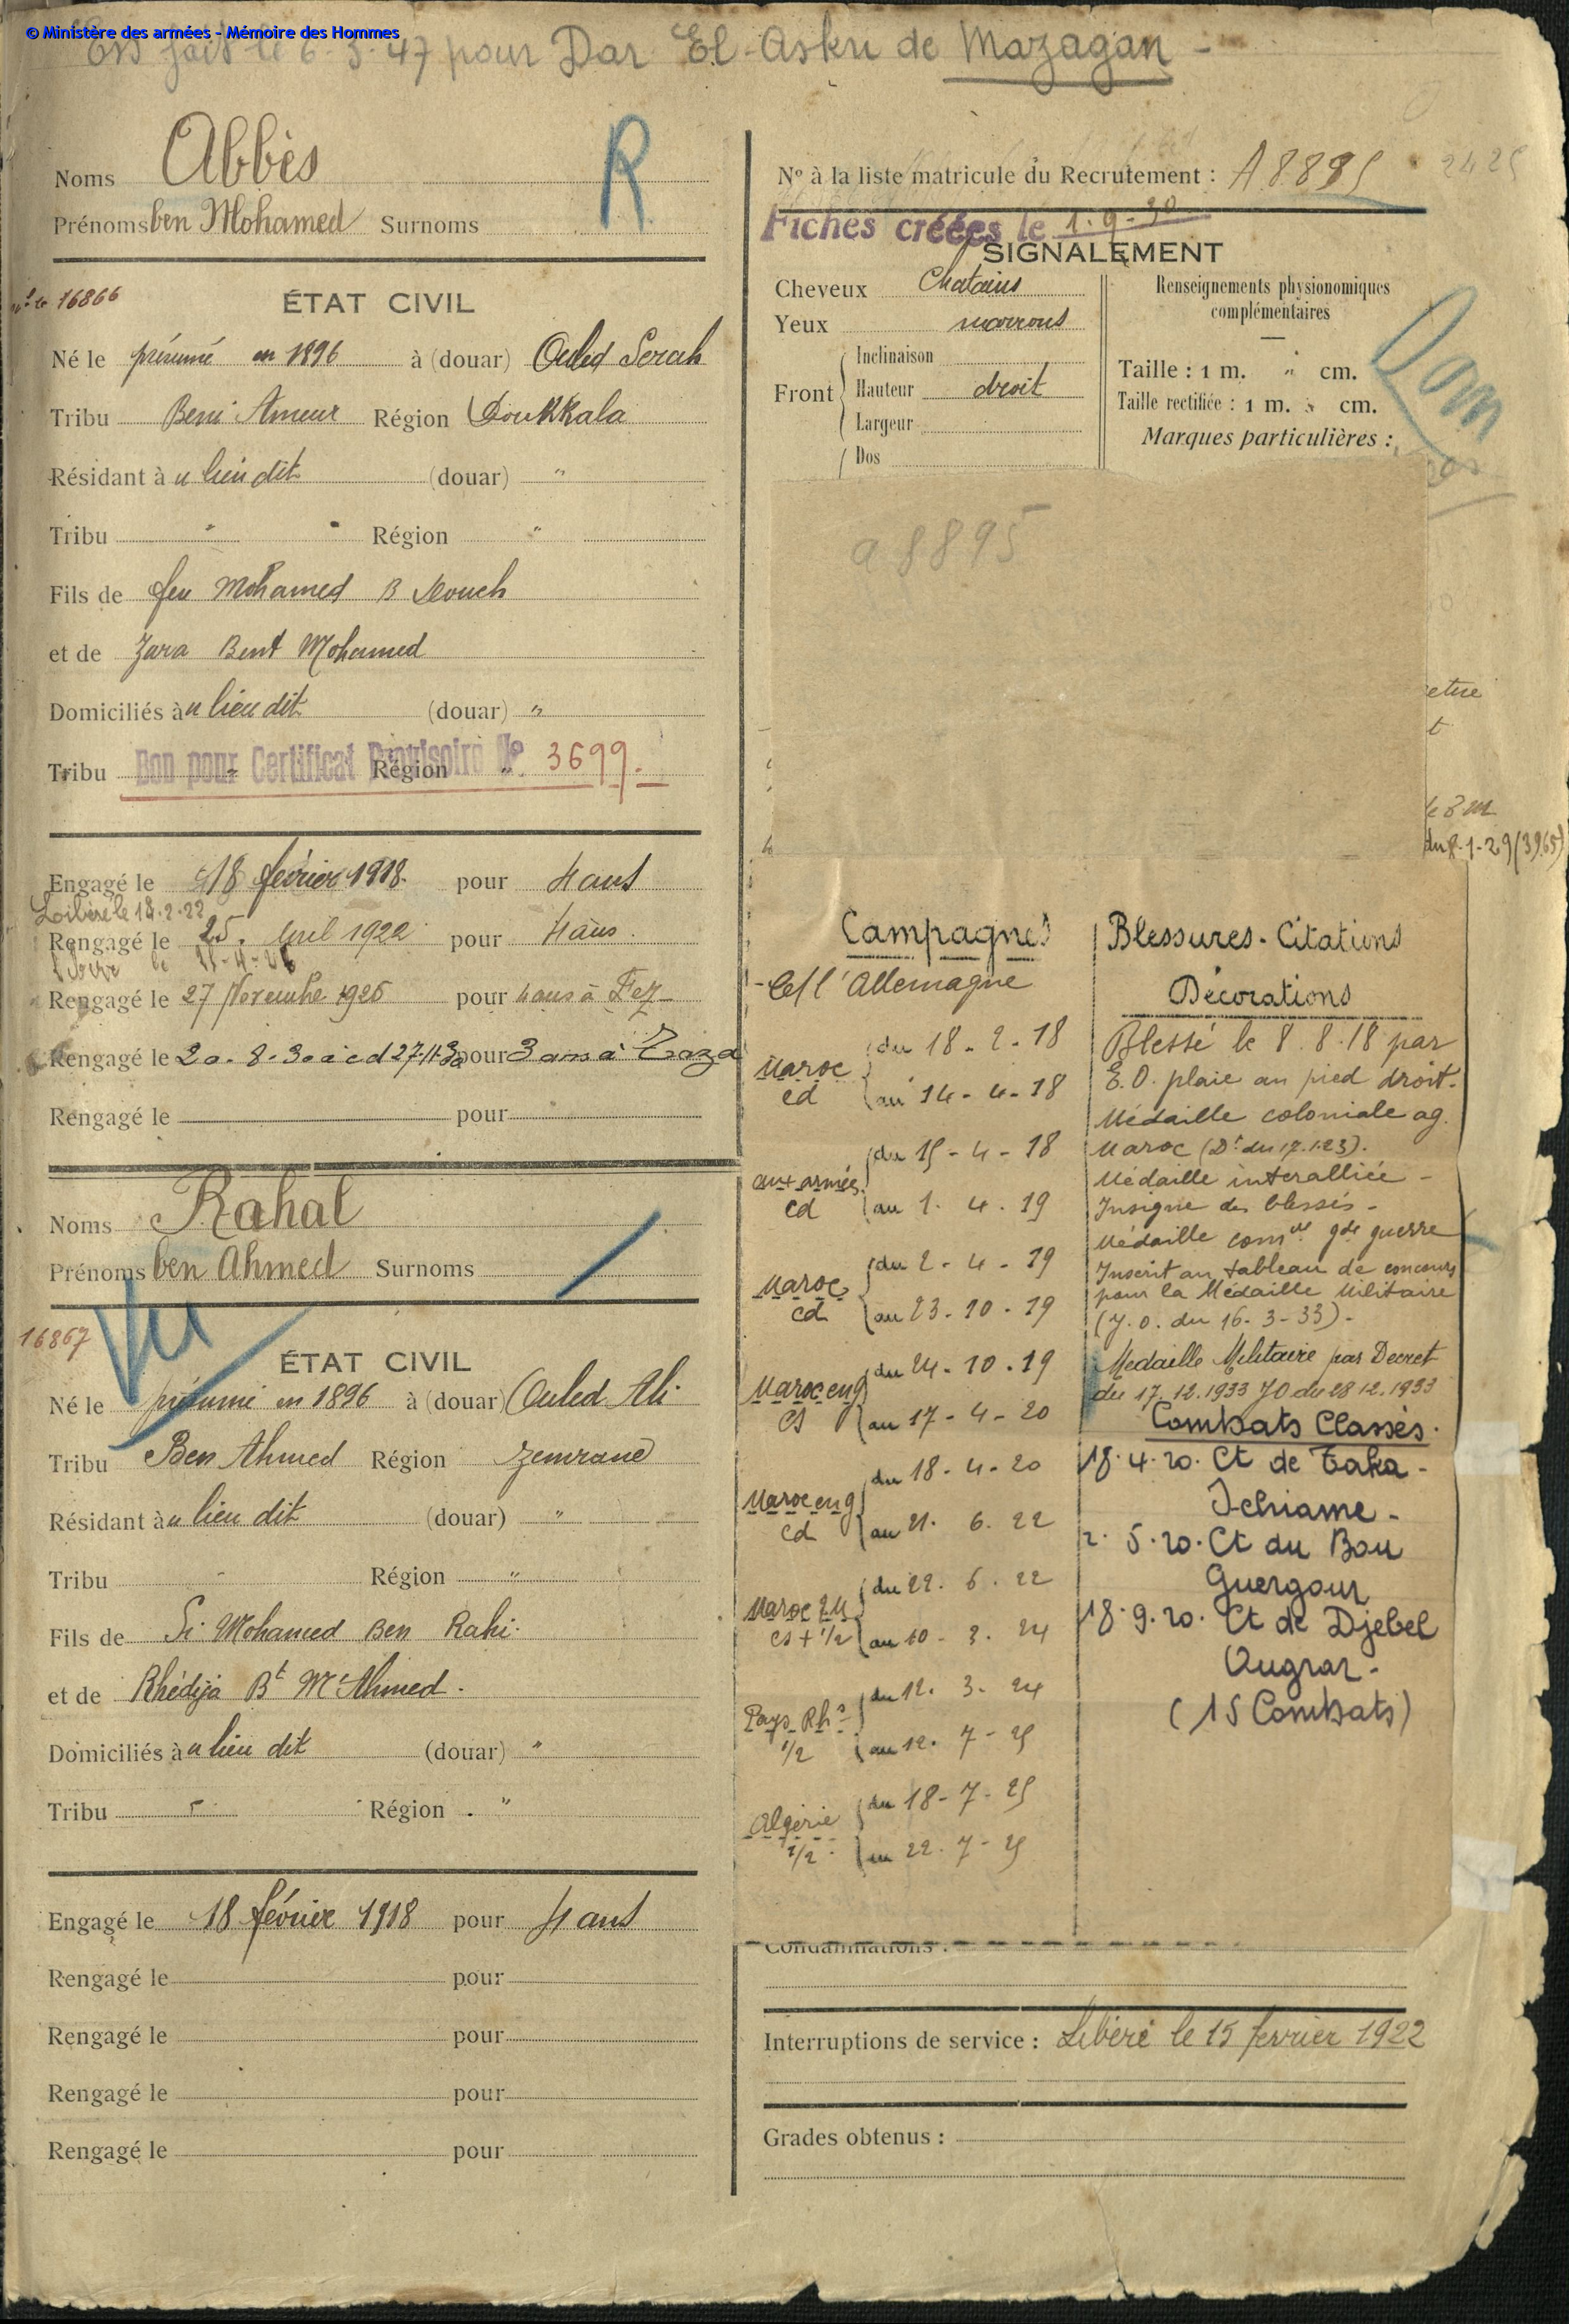 © Ministère des armées - Mémoire des Hommes
fait le 6.3.47 pour Dar El-Askri de Mazagan -
Noms Abbès
Prénoms ben Mohamed Surnoms
R
16866
ÉTAT CIVIL
Né le présumé en 1896 à (douar) Ouled Serah
Tribu Beni Ameur Région Doukkala
Résidant à u lieu dit (douar) "
Tribu " Région "
Fils de feu Mohamed B
et de Zara Bent Mohamed
Domiciliés à u lieu dit (douar) "
Tribu " Région "
Bon pour Certificat Provisoire No 3699.
Engagé le 18 février 1918. pour 4 ans
Libéré le 18.2.22
Rengagé le 25. Avril 1922 pour 4 ans.
libéré le
Rengagé le 27 Novembre 1926 pour 4 ans à Fez
Rengagé le 20.8.30 à cd 27.11.30 pour 3 ans à Taza
Rengagé le pour
Noms Rahal
Prénoms ben Ahmed Surnoms
Vu
16867
ÉTAT CIVIL
Né le présumé en 1896 à (douar) Ouled Ali
Tribu Ben Ahmed Région Zemrane
Résidant à u lieu dit (douar) "
Tribu " Région "
Fils de Si Mohamed Ben Rahi.
et de Khédija Bt Md Ahmed.
Domiciliés à u lieu dit (douar) "
Tribu " Région "
Engagé le 18 février 1918 pour 4 ans
Rengagé le pour
Rengagé le pour
Rengagé le pour
Rengagé le pour
No à la liste matricule du Recrutement : A 8895
2425
Fiches créées le 1.9.30
SIGNALEMENT
Cheveux Chatains
Yeux marrons
Front
Inclinaison
Hauteur droit
Largeur
Dos
Renseignements physionomiques
complémentaires
Taille : 1 m. " cm.
Taille rectifiée : 1 m. cm.
Marques particulières :
a 8895
du 8-1-29 (3965)
Campagnes
- Ct l'Allemagne
Maroc cd
du 18-2-18
au 14-4-18
aux armées cd
du 15-4-18
au 1.4.19
Maroc cd
du 2-4-19
au 23.10.19
Maroc eng cs
du 24.10.19
au 17-4-20
Maroc eng cd
du 18-4-20
au 21.6.22
Maroc cs + 1/2
du 22.6.22
au 10-3.24
Pays Rhs 1/2
du 12.3.24
au 12.7-25
Algérie 1/2
du 18-7-25
au 22.7-25
Blessures - Citations
Décorations
Blessé le 8.8.18 par
E.O. plaie au pied droit.
Médaille coloniale ag.
Maroc (Dt du 17.1.23).
Médaille interalliée -
Insigne des blessés -
Médaille comve gde guerre
Inscrit au tableau de concours
pour la Médaille Militaire
(J.O. du 16-3-33) -
Médaille Militaire par Decret
du 17.12.1933 JO du 28 12.1933
Combats Classés.
18.4.20. Ct de Taka -
Ichiame -
2.5.20. Ct du Bou
Guergour
18.9.20. Ct de Djebel
Ougrar -
(15 Combats)
Condamnations :
Interruptions de service : Libéré le 15 fevrier 1922
Grades obtenus :